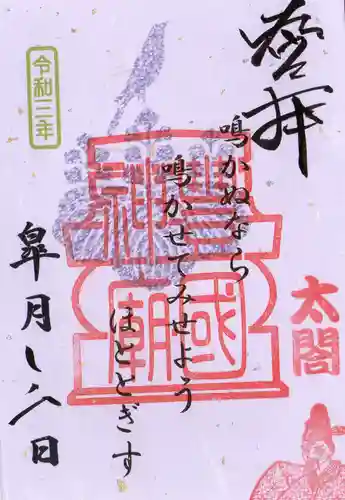 登拝
鳴かぬなら
鳴かせてみせよう
ほととぎす
皐月 八日
令和三年
豊國
神廟
太閤